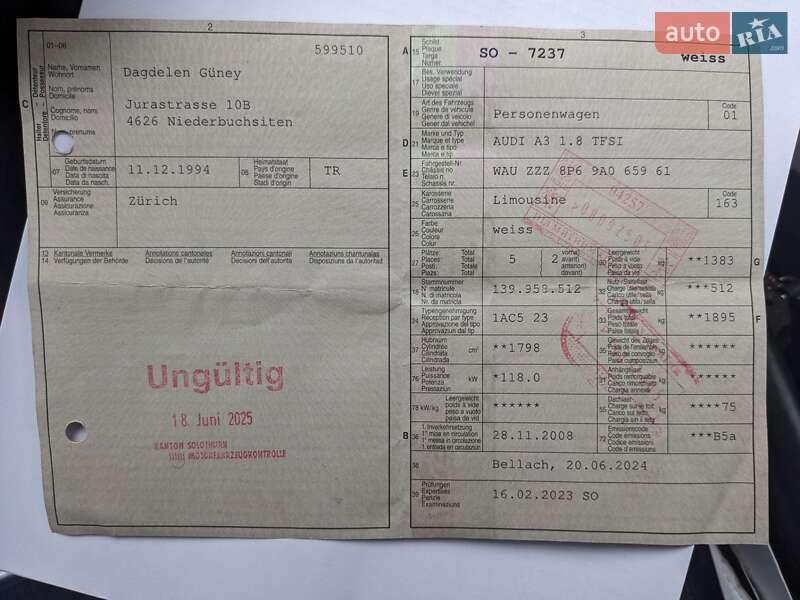 auto RIA.com
2
3
01-06
599510
Name, Vornamen
Wohnort
Nom, prénoms
Domicile
Cognome, nomi
Domicilio
Num, prenums
Dagdelen Güney
Jurastrasse 10B
4626 Niederbuchsiten
C
07
Geburtsdatum
Date de naissance
Data di nascita
Data da nasch.
11.12.1994
08
Heimatstaat
Pays d'origine
Paese d'origine
Stadi d'origin
TR
09
Versicherung
Assurance
Assicurazione
Assicuranza
Zürich
13
14
Kantonale Vermerke
Verfügungen der Behörde
Annotations cantonales
Décisions de l'autorité
Annotazioni cantonali
Decisioni dell'autorità
Annotaziuns chantunalas
Disposiziuns da l'autoritad
Ungültig
18. Juni 2025
KANTON SOLOTHURN
MOTORFAHRZEUGKONTROLLE
A
15
Schild
Plaque
Targa
Numer
SO - 7237
weiss
17
Bes. Verwendung
Usage spécial
Uso speciale
Diever spezial
19
Art des Fahrzeugs
Genre de véhicule
Genere di veicolo
Gener dal vehichel
Personenwagen
Code
01
D
21
Marke und Typ
Marque et type
Marca e tipo
Marca e tip
AUDI A3 1.8 TFSI
E
23
Fahrgestell-Nr
Châssis no
Telaio n.
Schassis nr.
WAU ZZZ 8P6 9A0 659 61
25
Karosserie
Carrosserie
Carrozzeria
Carossaria
Limousine
Code
163
26
Farbe
Couleur
Colore
Colur
weiss
27
Plätze: Total
Places: Total
Posti: Total
Plazs: Total
5
2
vorne)
avant)
anteriori)
davant)
Leergewicht
Poids à vide
Peso a vuoto
Paisa da vid
kg
**1383
G
18
Stammnummer
N° matricule
N. di matricola
Nr. da matricla
139.958.512
32
kg
***512
24
Typengenehmigung
Réception par type
Approvazione del tipo
Approvaziun dal tip
1AC5 23
33
Gesamtgewicht
Poids total
Peso totale
Paisa totala
kg
**1895
F
37
Hubraum
Cylindrée
Cilindrata
Cilindrada
cm³
**1798
35
Gewicht des Zuges
Poids de l'ensemble
kg
******
76
Leistung
Puissance
Potenza
Prestaziun
kW
*118.0
31
Anhängelast
Poids remorquable
kg
******
78
kW/kg
Leergewicht
poids à vide
peso a vuoto
paisa da vid
******
55
Dachlast
Charge sur le toit
kg
****75
B
36
1. Inverkehrsetzung
1re mise en circulation
1a messa in circolazione
1. entrada en circulaziun
28.11.2008
72
Emissionscode
Code émissions
Codice emissioni
Code d'emissiuns
***B5a
38
Bellach, 20.06.2024
39
Prüfungen
Expertises
Perizie
Examinaziuns
16.02.2023 SO